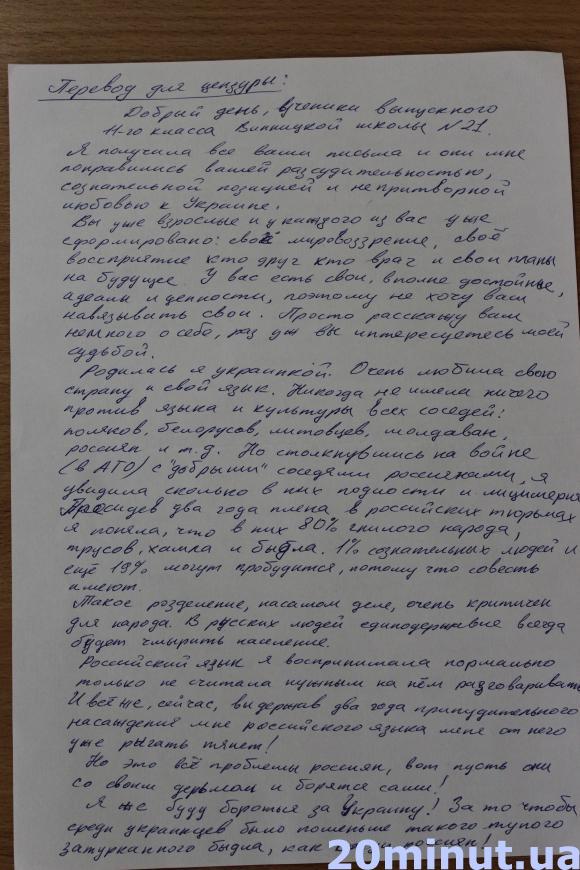 Перевод для цензуры:
Добрый день, ученики выпускного
11-го класса Винницкой школы N21.
Я получила все ваши письма и они мне
понравились вашей рассудительностью,
сознательной позицией и непритворной
любовью к Украине.
Вы уже взрослые и у каждого из вас уже
сформировано: своё мировоззрение, своё
восприятие кто друг кто враг и свои планы
на будущее. У вас есть свои, вполне достойные,
идеалы и ценности, поэтому не хочу вам
навязывать свои. Просто расскажу вам
немного о себе, раз уж вы интересуетесь моей
судьбой.
Родилась я украинкой. Очень любила свою
страну и свой язык. Никогда не имела ничего
против языка и культуры всех соседей:
поляков, белорусов, литовцев, молдаван,
россиян и т.д. Но столкнувшись на войне
(в АТО) с "добрыми" соседями россиянами, я
увидила сколько в них подности и лицимерия
Просидев два года плена в российских тюрьмах
я поняла, что в них 80% гнилого народа,
трусов, хамла и быдла. 1% сознательных людей и
ещё 19% могут пробудится, потому что совесть
имеют.
Такое розделение, насамом деле, очень критичен
для народа. В русских людей единодержавие всегда
будет чмырить население.
Российский язык я воспринимала нормально
только не считала нужным на нём разговаривать
И всё же, сейчас, выдержав два года принудительного
насаждения мне российского языка меня от него
уже рыгать тянет!
Но это всё проблемы россиян, вот пусть они
со своим дерьмом и борятся сами!
Я же буду бороться за Украину! За то чтобы
среди украинцев было поменьше такого тупого
затурканного быдла, как россиян!
20minut.ua